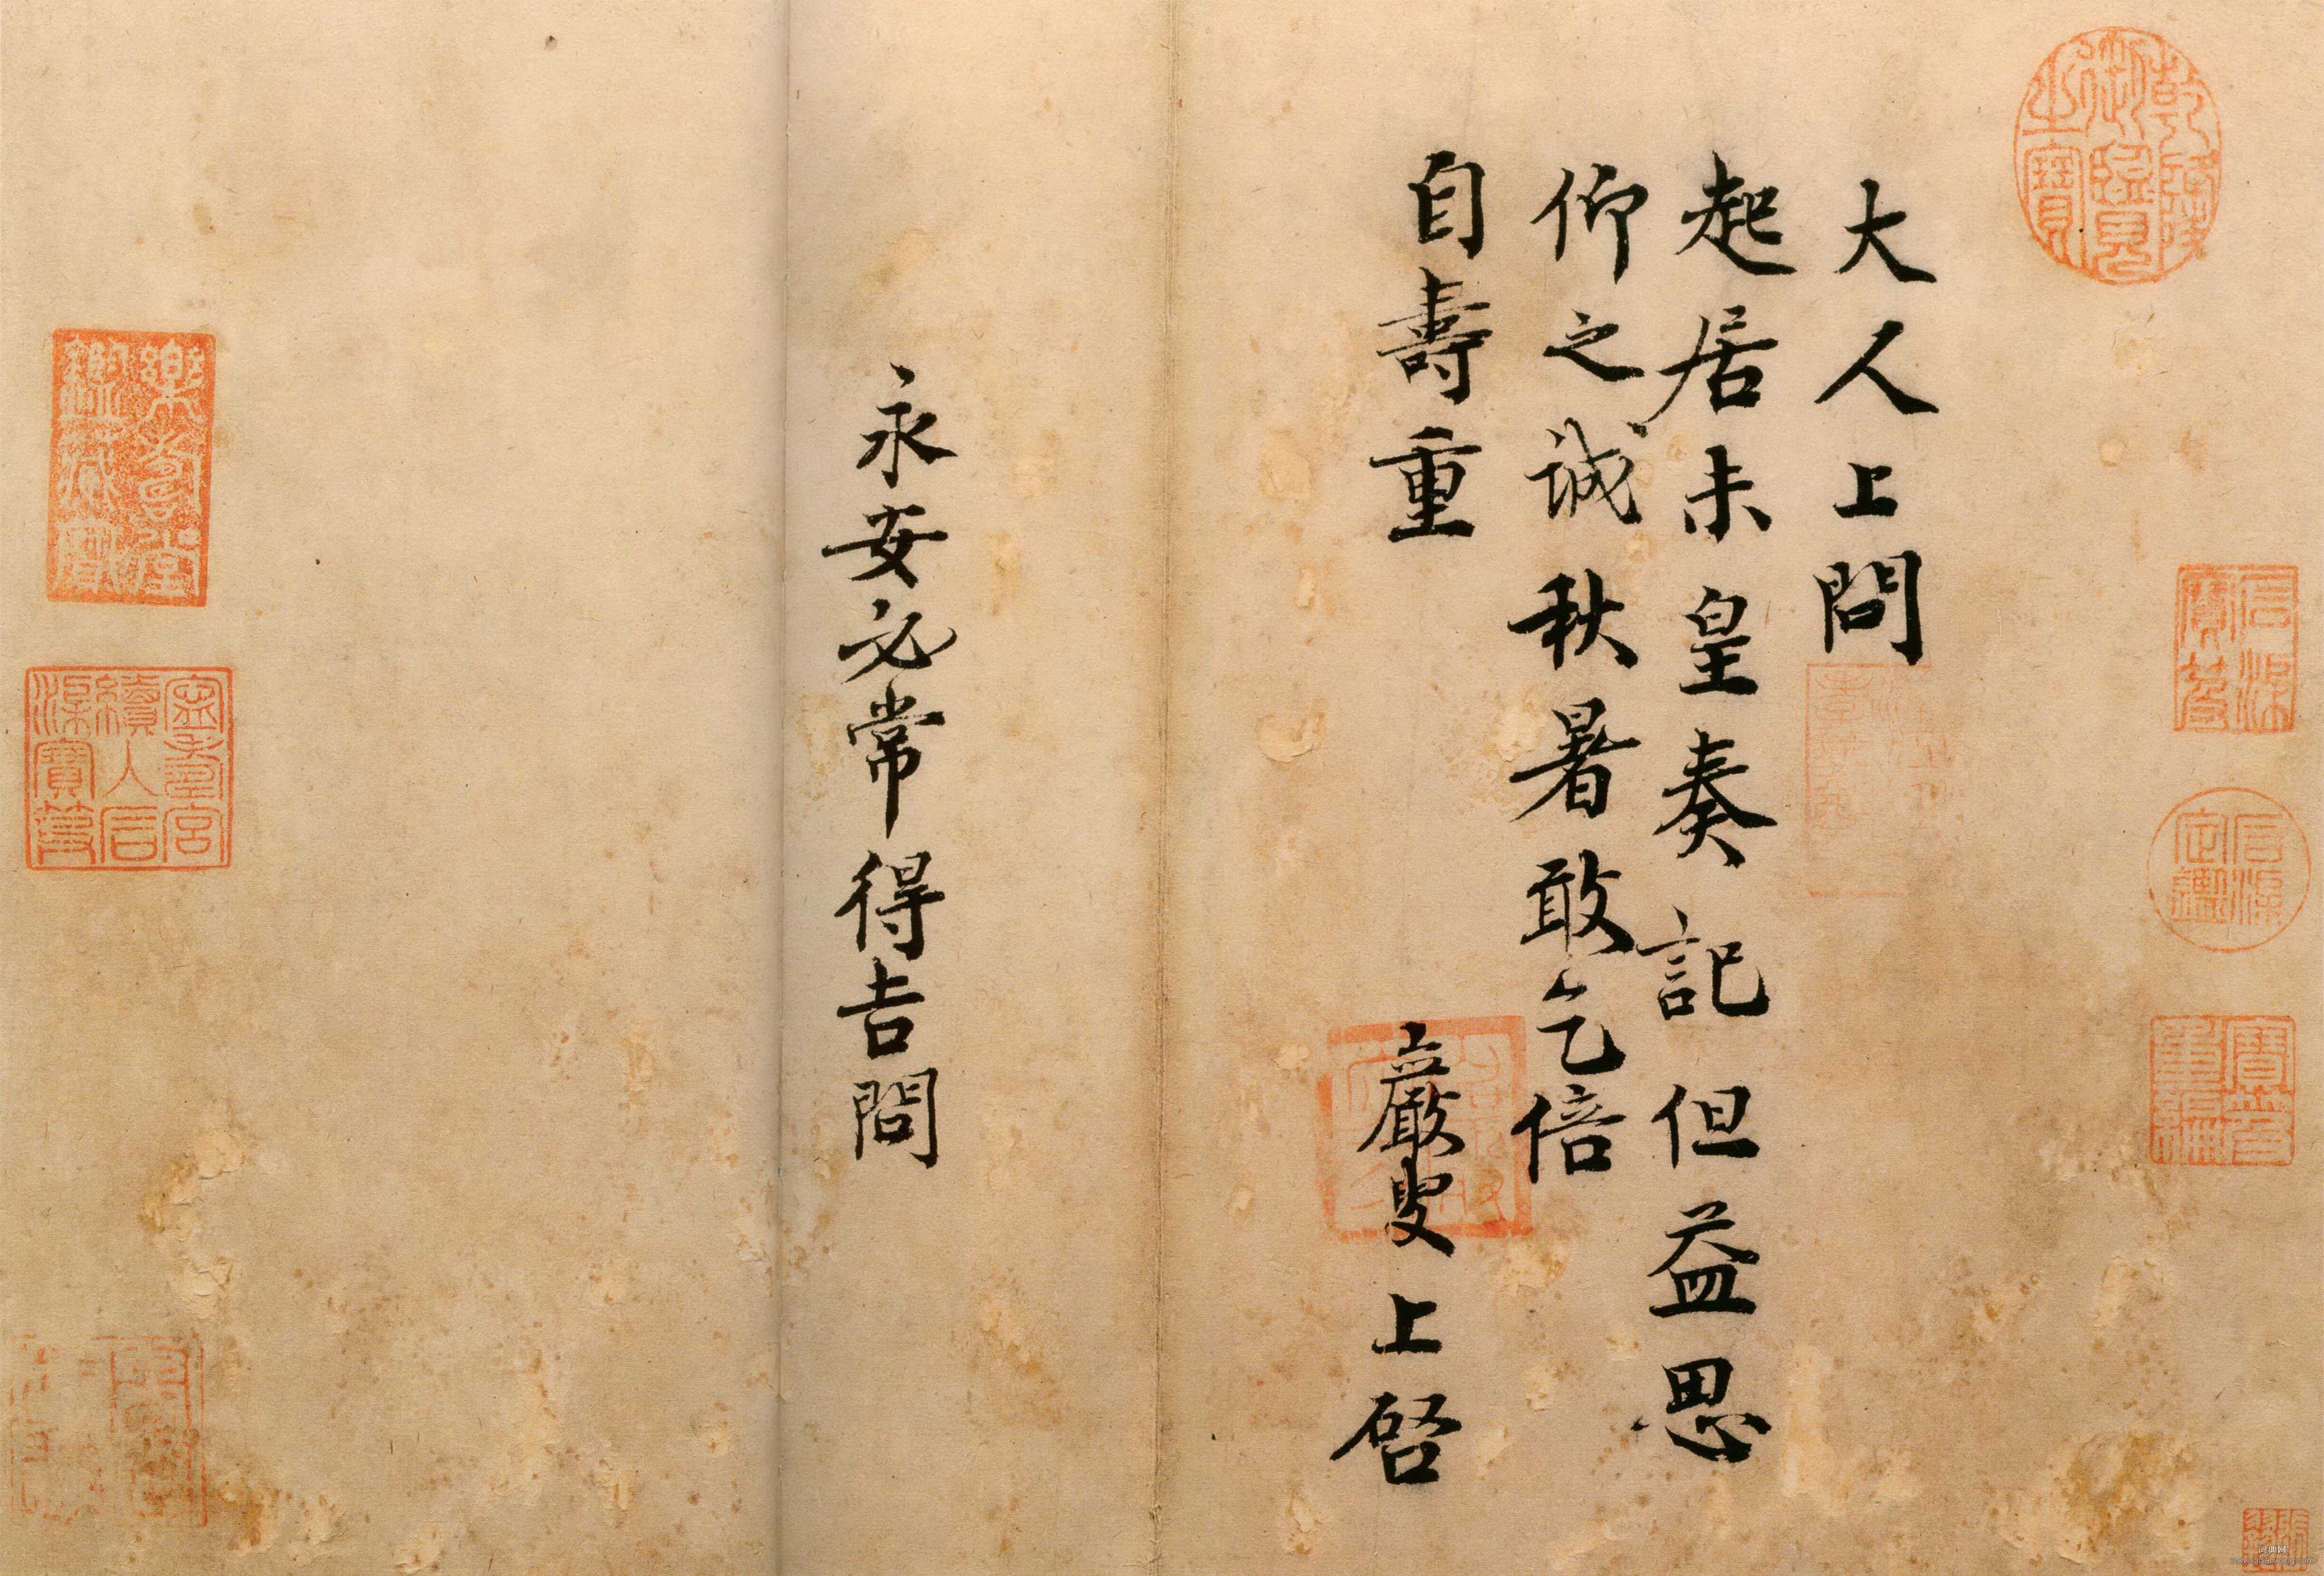 乾隆御覽之寶
石渠寶笈
石渠定鑑
寶笈重編
大人上問
起居未皇奏記但益思
仰之誠秋暑敢乞倍
自壽重 嚴叟上啓
永安必常得吉問
樂壽堂鑑藏寶
寧壽宮續入石渠寶笈